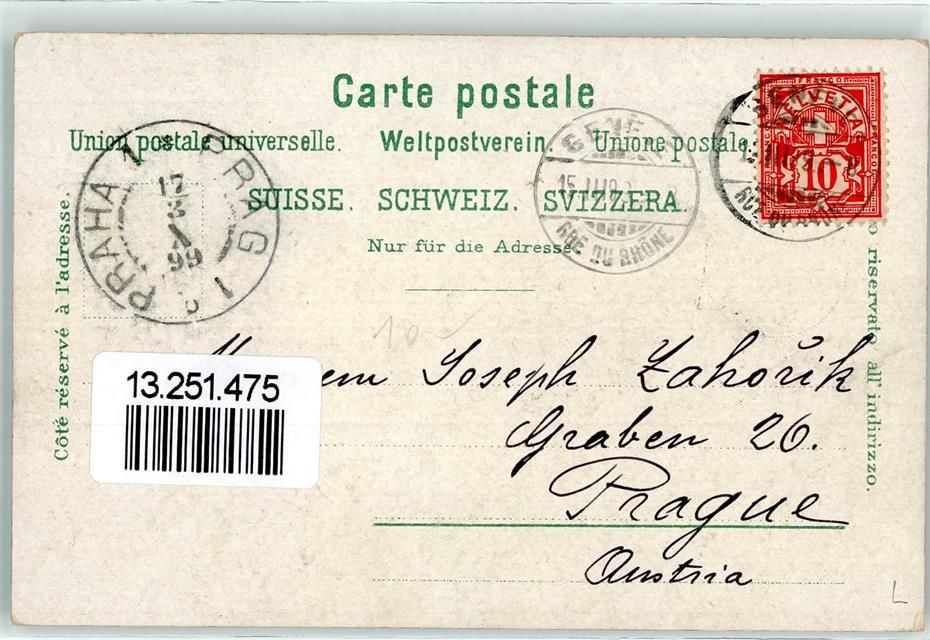 Carte postale
Union postale universelle. Weltpostverein. Unione postale
SUISSE. SCHWEIZ. SVIZZERA.
Nur für die Adresse
Côté réservé à l'adresse.
riservato all' indirizzo.
PRAHA 1 * PRAG 1
17
3
99
GENÈVE
RUE DU RHÔNE
FRANCO
HELVETIA
10
FRANCO
RUE DU RHÔNE
10
Joseph Zahořík
Graben 26.
Prague
Austria
13.251.475
L